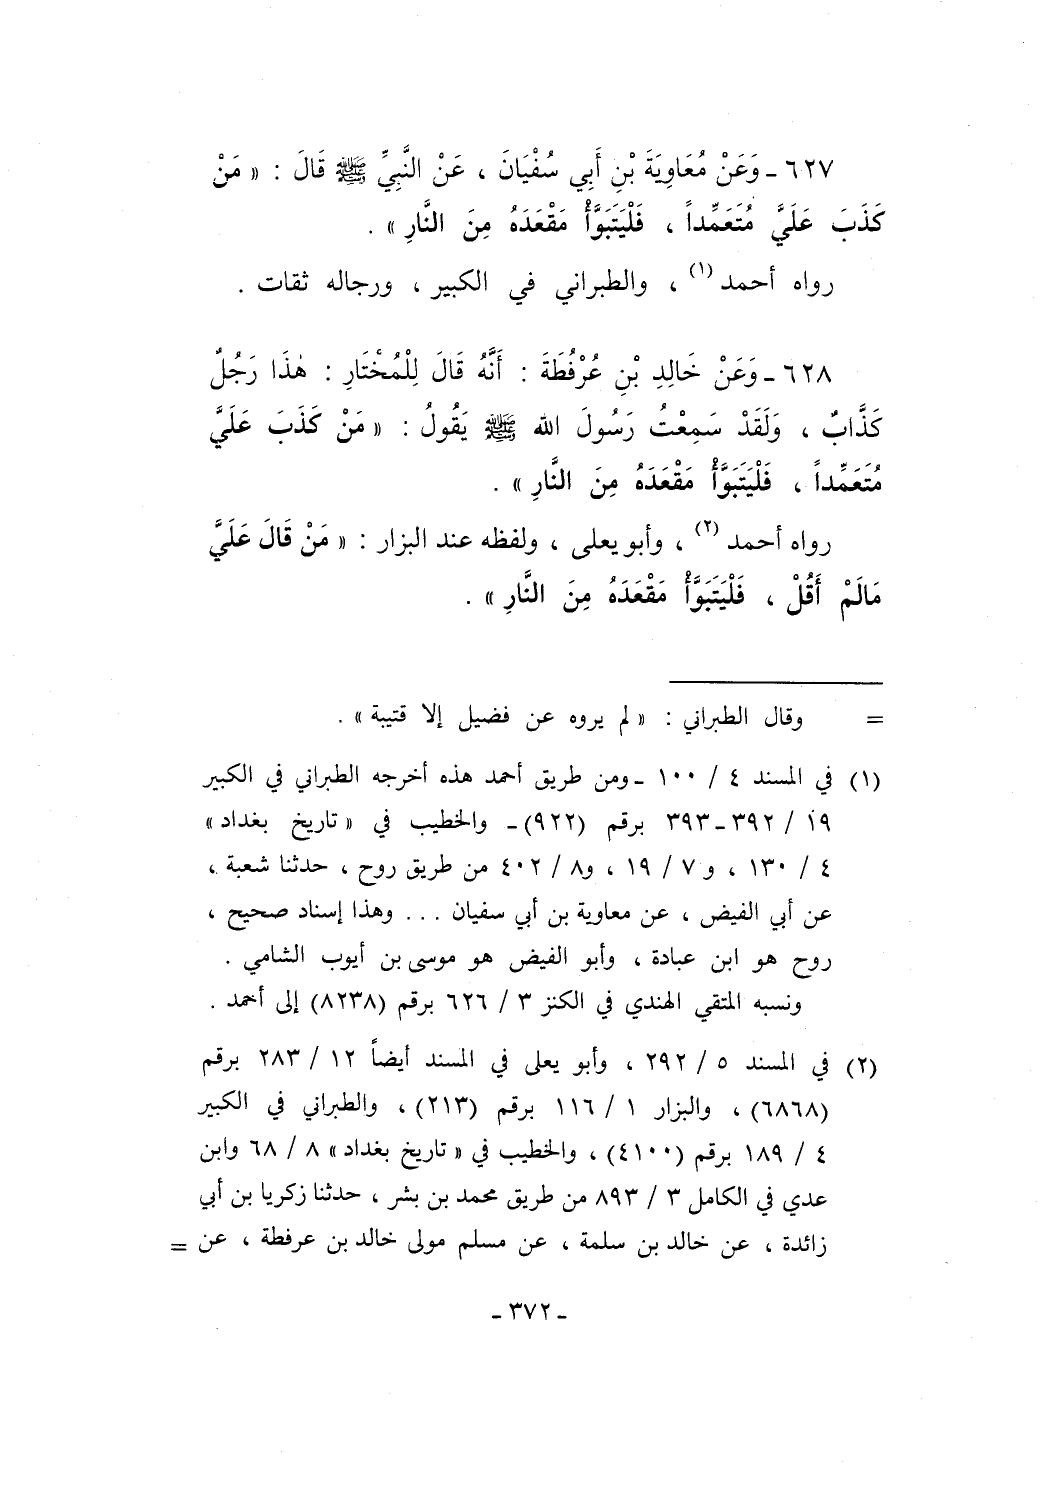 ٦٢٧ ـ وَعَنْ مُعَاوِيَةَ بْنِ أَبِي سُفْيَانَ ، عَنْ النَّبِيِّ ﷺ قَالَ : « مَنْ
كَذَبَ عَلَيَّ مُتَعَمِّداً ، فَلْيَتَبَوَّأْ مَقْعَدَهُ مِنَ النَّارِ » .
رواه أحمد (١) ، والطبراني في الكبير ، ورجاله ثقات .
٦٢٨ ـ وَعَنْ خَالِدِ بْنِ عُرْفُطَةَ : أَنَّهُ قَالَ لِلْمُخْتَارِ : هٰذَا رَجُلٌ
كَذَّابٌ ، وَلَقَدْ سَمِعْتُ رَسُولَ الله ﷺ يَقُولُ : « مَنْ كَذَبَ عَلَيَّ
مُتَعَمِّداً ، فَلْيَتَبَوَّأْ مَقْعَدَهُ مِنَ النَّارِ » .
رواه أحمد (٢) ، وأبو يعلى ، ولفظه عند البزار : « مَنْ قَالَ عَلَيَّ
مَالَمْ أَقُلْ ، فَلْيَتَبَوَّأْ مَقْعَدَهُ مِنَ النَّارِ » .
= وقال الطبراني : « لم يروه عن فضيل إلا قتيبة » .
(١) في المسند ٤ / ١٠٠ ـ ومن طريق أحمد هذه أخرجه الطبراني في الكبير
١٩ / ٣٩٢ ـ ٣٩٣ برقم (٩٢٢) ـ والخطيب في « تاريخ بغداد »
٤ / ١٣٠ ، و ٧ / ١٩ ، و٨ / ٤٠٢ من طريق روح ، حدثنا شعبة ،
عن أبي الفيض ، عن معاوية بن أبي سفيان ... وهذا إسناد صحيح ،
روح هو ابن عبادة ، وأبو الفيض هو موسى بن أيوب الشامي .
ونسبه المتقي الهندي في الكنز ٣ / ٦٢٦ برقم (٨٢٣٨) إلى أحمد .
(٢) في المسند ٥ / ٢٩٢ ، وأبو يعلى في المسند أيضاً ١٢ / ٢٨٣ برقم
(٦٨٦٨) ، والبزار ١ / ١١٦ برقم (٢١٣) ، والطبراني في الكبير
٤ / ١٨٩ برقم (٤١٠٠) ، والخطيب في « تاريخ بغداد » ٨ / ٦٨ وابن
عدي في الكامل ٣ / ٨٩٣ من طريق محمد بن بشر ، حدثنا زكريا بن أبي
زائدة ، عن خالد بن سلمة ، عن مسلم مولى خالد بن عرفطة ، عن =
ـ ٣٧٢ ـ